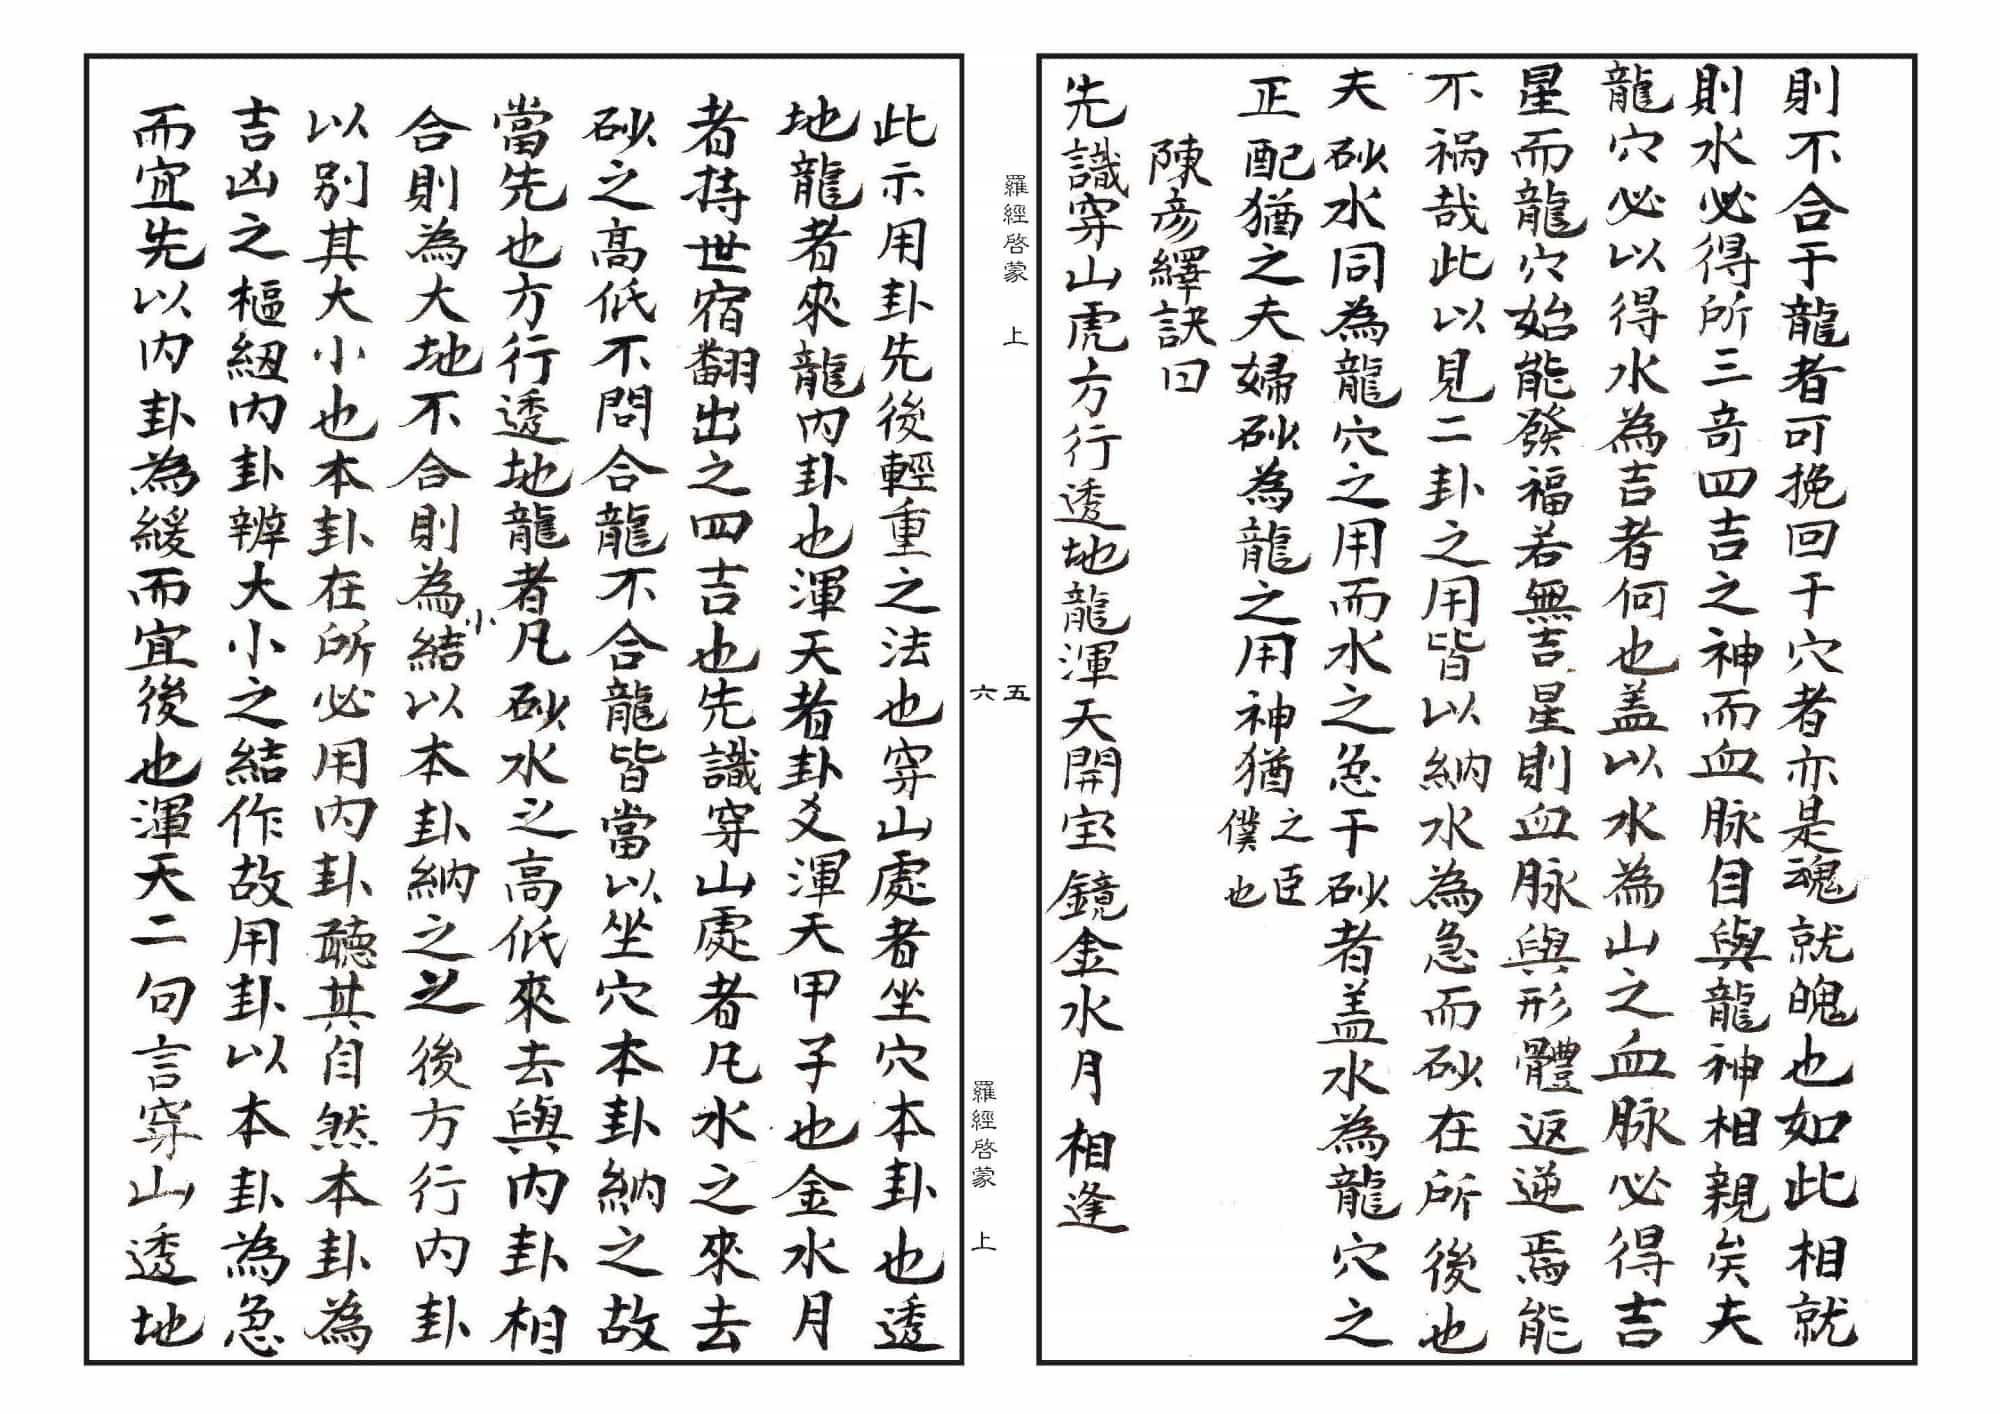 則不合于龍者可挽回于穴者亦是魂就魄也如此相就
則水必得所三奇四吉之神而血脉自與龍神相親矣夫
龍穴必以得水為吉者何也盖以水為山之血脉必得吉
星而龍穴始能發福若無吉星則血脉與形體返逆焉能
不禍哉此以見二卦之用皆以納水為急而砂在所後也
夫砂水同為龍穴之用而水之急于砂者盖水為龍穴之
正配猶之夫婦砂為龍之用神猶之臣僕也
陳彦繹訣曰
先識穿山虎方行透地龍渾天開宝鏡金水月相逢
羅經啓蒙 上
五
六
羅經啓蒙 上
此示用卦先後輕重之法也穿山處者坐穴本卦也透
地龍者來龍内卦也渾天者卦爻渾天甲子也金水月
者持世宿翻出之四吉也先識穿山處者凡水之來去
砂之高低不問合龍不合龍皆當以坐穴本卦納之故
當先也方行透地龍者凡砂水之高低來去與内卦相
合則為大地不合則為小結以本卦納之之後方行内卦
以别其大小也本卦在所必用内卦聽其自然本卦為
吉凶之樞紐内卦辨大小之結作故用卦以本卦為急
而宜先以内卦為緩而宜後也渾天二句言穿山透地